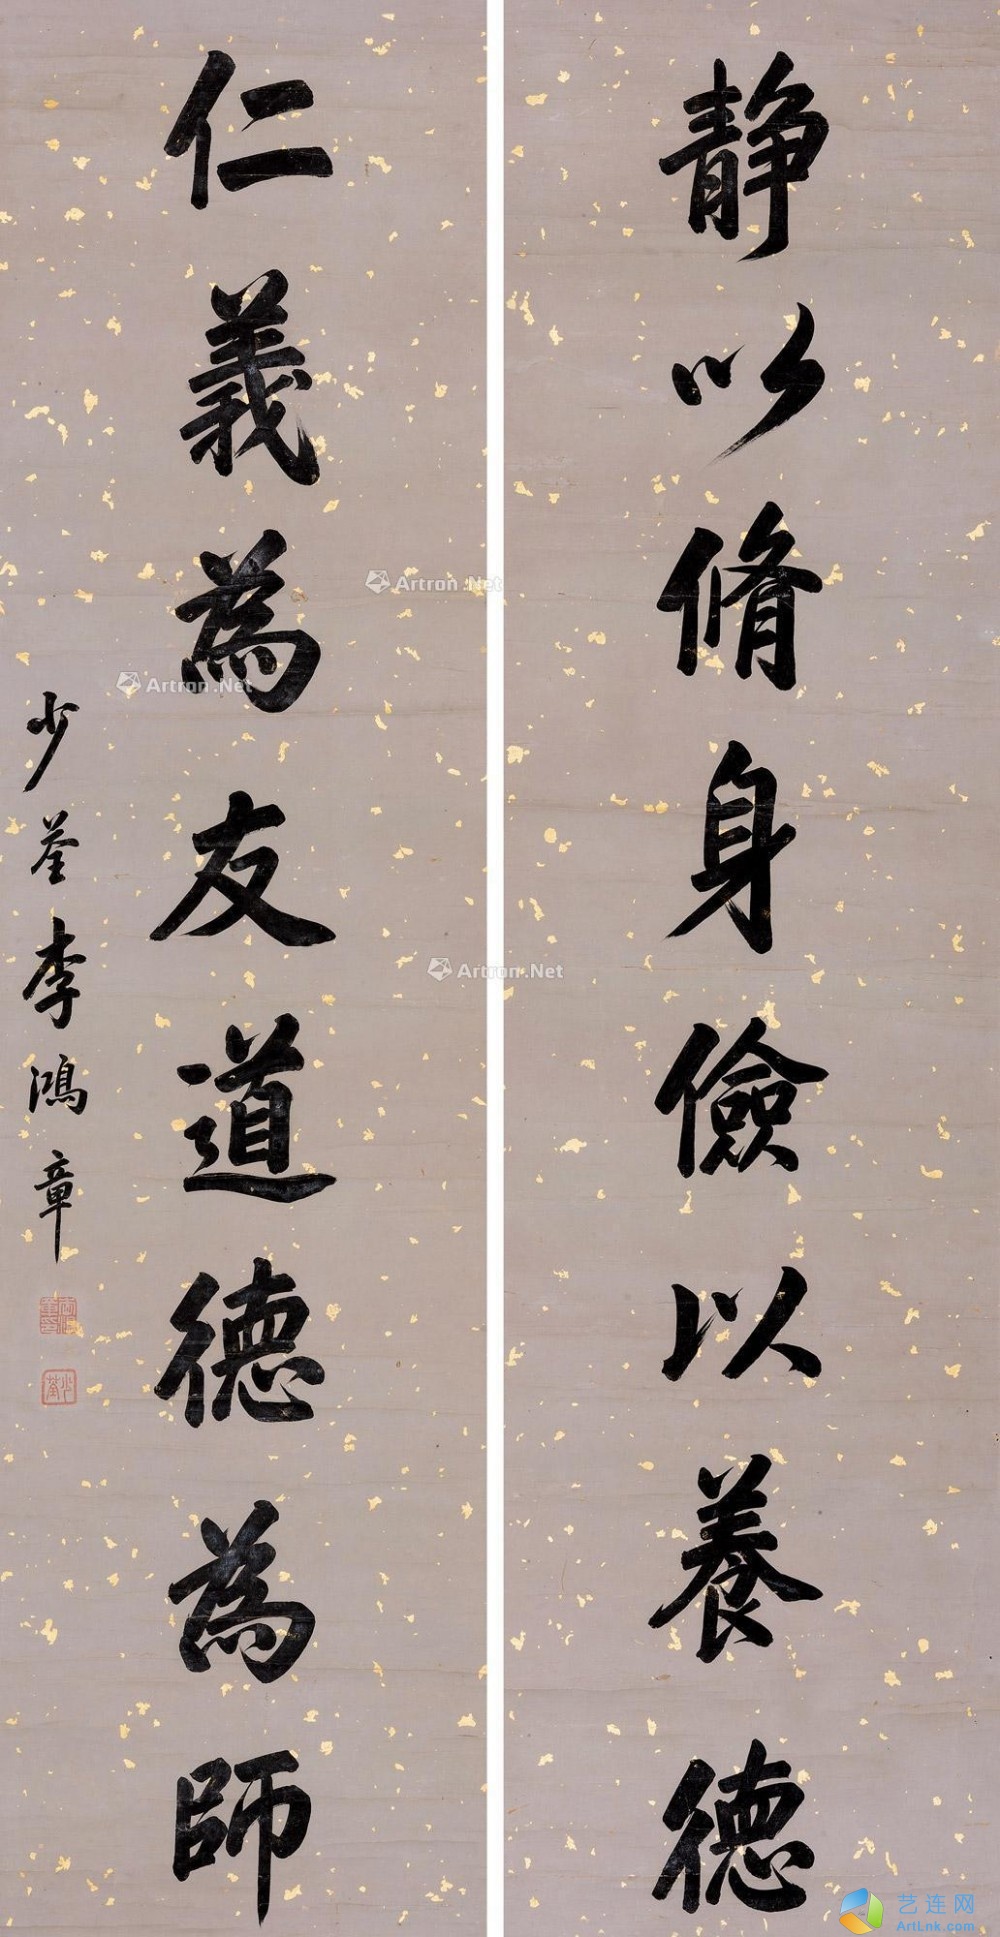 静以脩身儉以養德
仁義為友道德為師
少荃李鴻章
Artron.Net
Artron.Net
Artron.Net
艺连网
ArtLnk.com